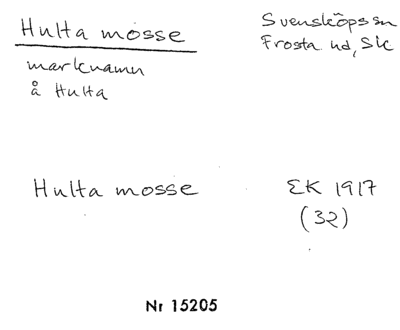 Hulta mosse
Svensköps sn
Frosta hd, Sk
marknamn
å Hulta
Hulta mosse
EK 1917
(32)
Nr 15205